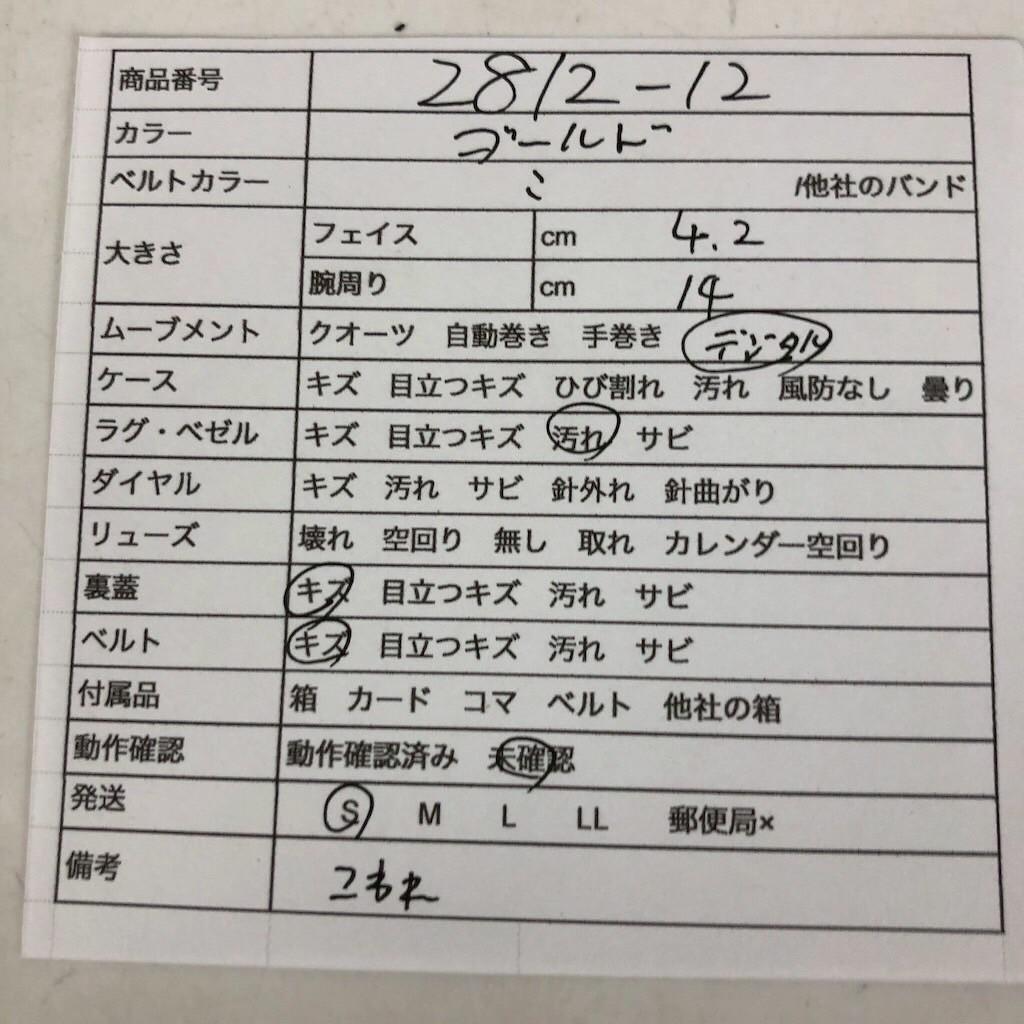 商品番号 2812-12
カラー ゴールド
ベルトカラー 〃 /他社のバンド
大きさ フェイス cm 4.2
腕周り cm 14
ムーブメント クオーツ 自動巻き 手巻き デジタル
ケース キズ 目立つキズ ひび割れ 汚れ 風防なし 曇り
ラグ・ベゼル キズ 目立つキズ 汚れ サビ
ダイヤル キズ 汚れ サビ 針外れ 針曲がり
リューズ 壊れ 空回り 無し 取れ カレンダー空回り
裏蓋 キズ 目立つキズ 汚れ サビ
ベルト キズ 目立つキズ 汚れ サビ
付属品 箱 カード コマ ベルト 他社の箱
動作確認 動作確認済み 未確認
発送 S M L LL 郵便局×
備考